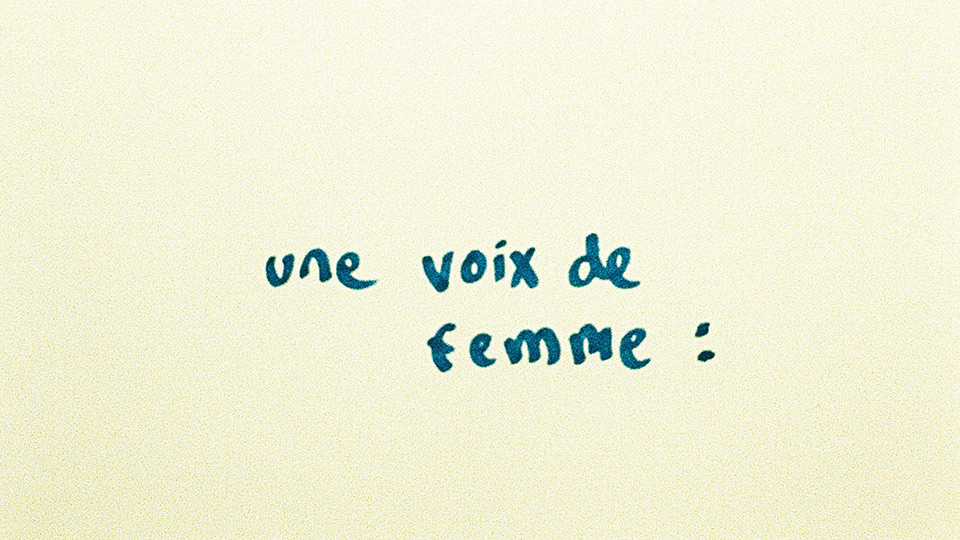 une voix de
femme :